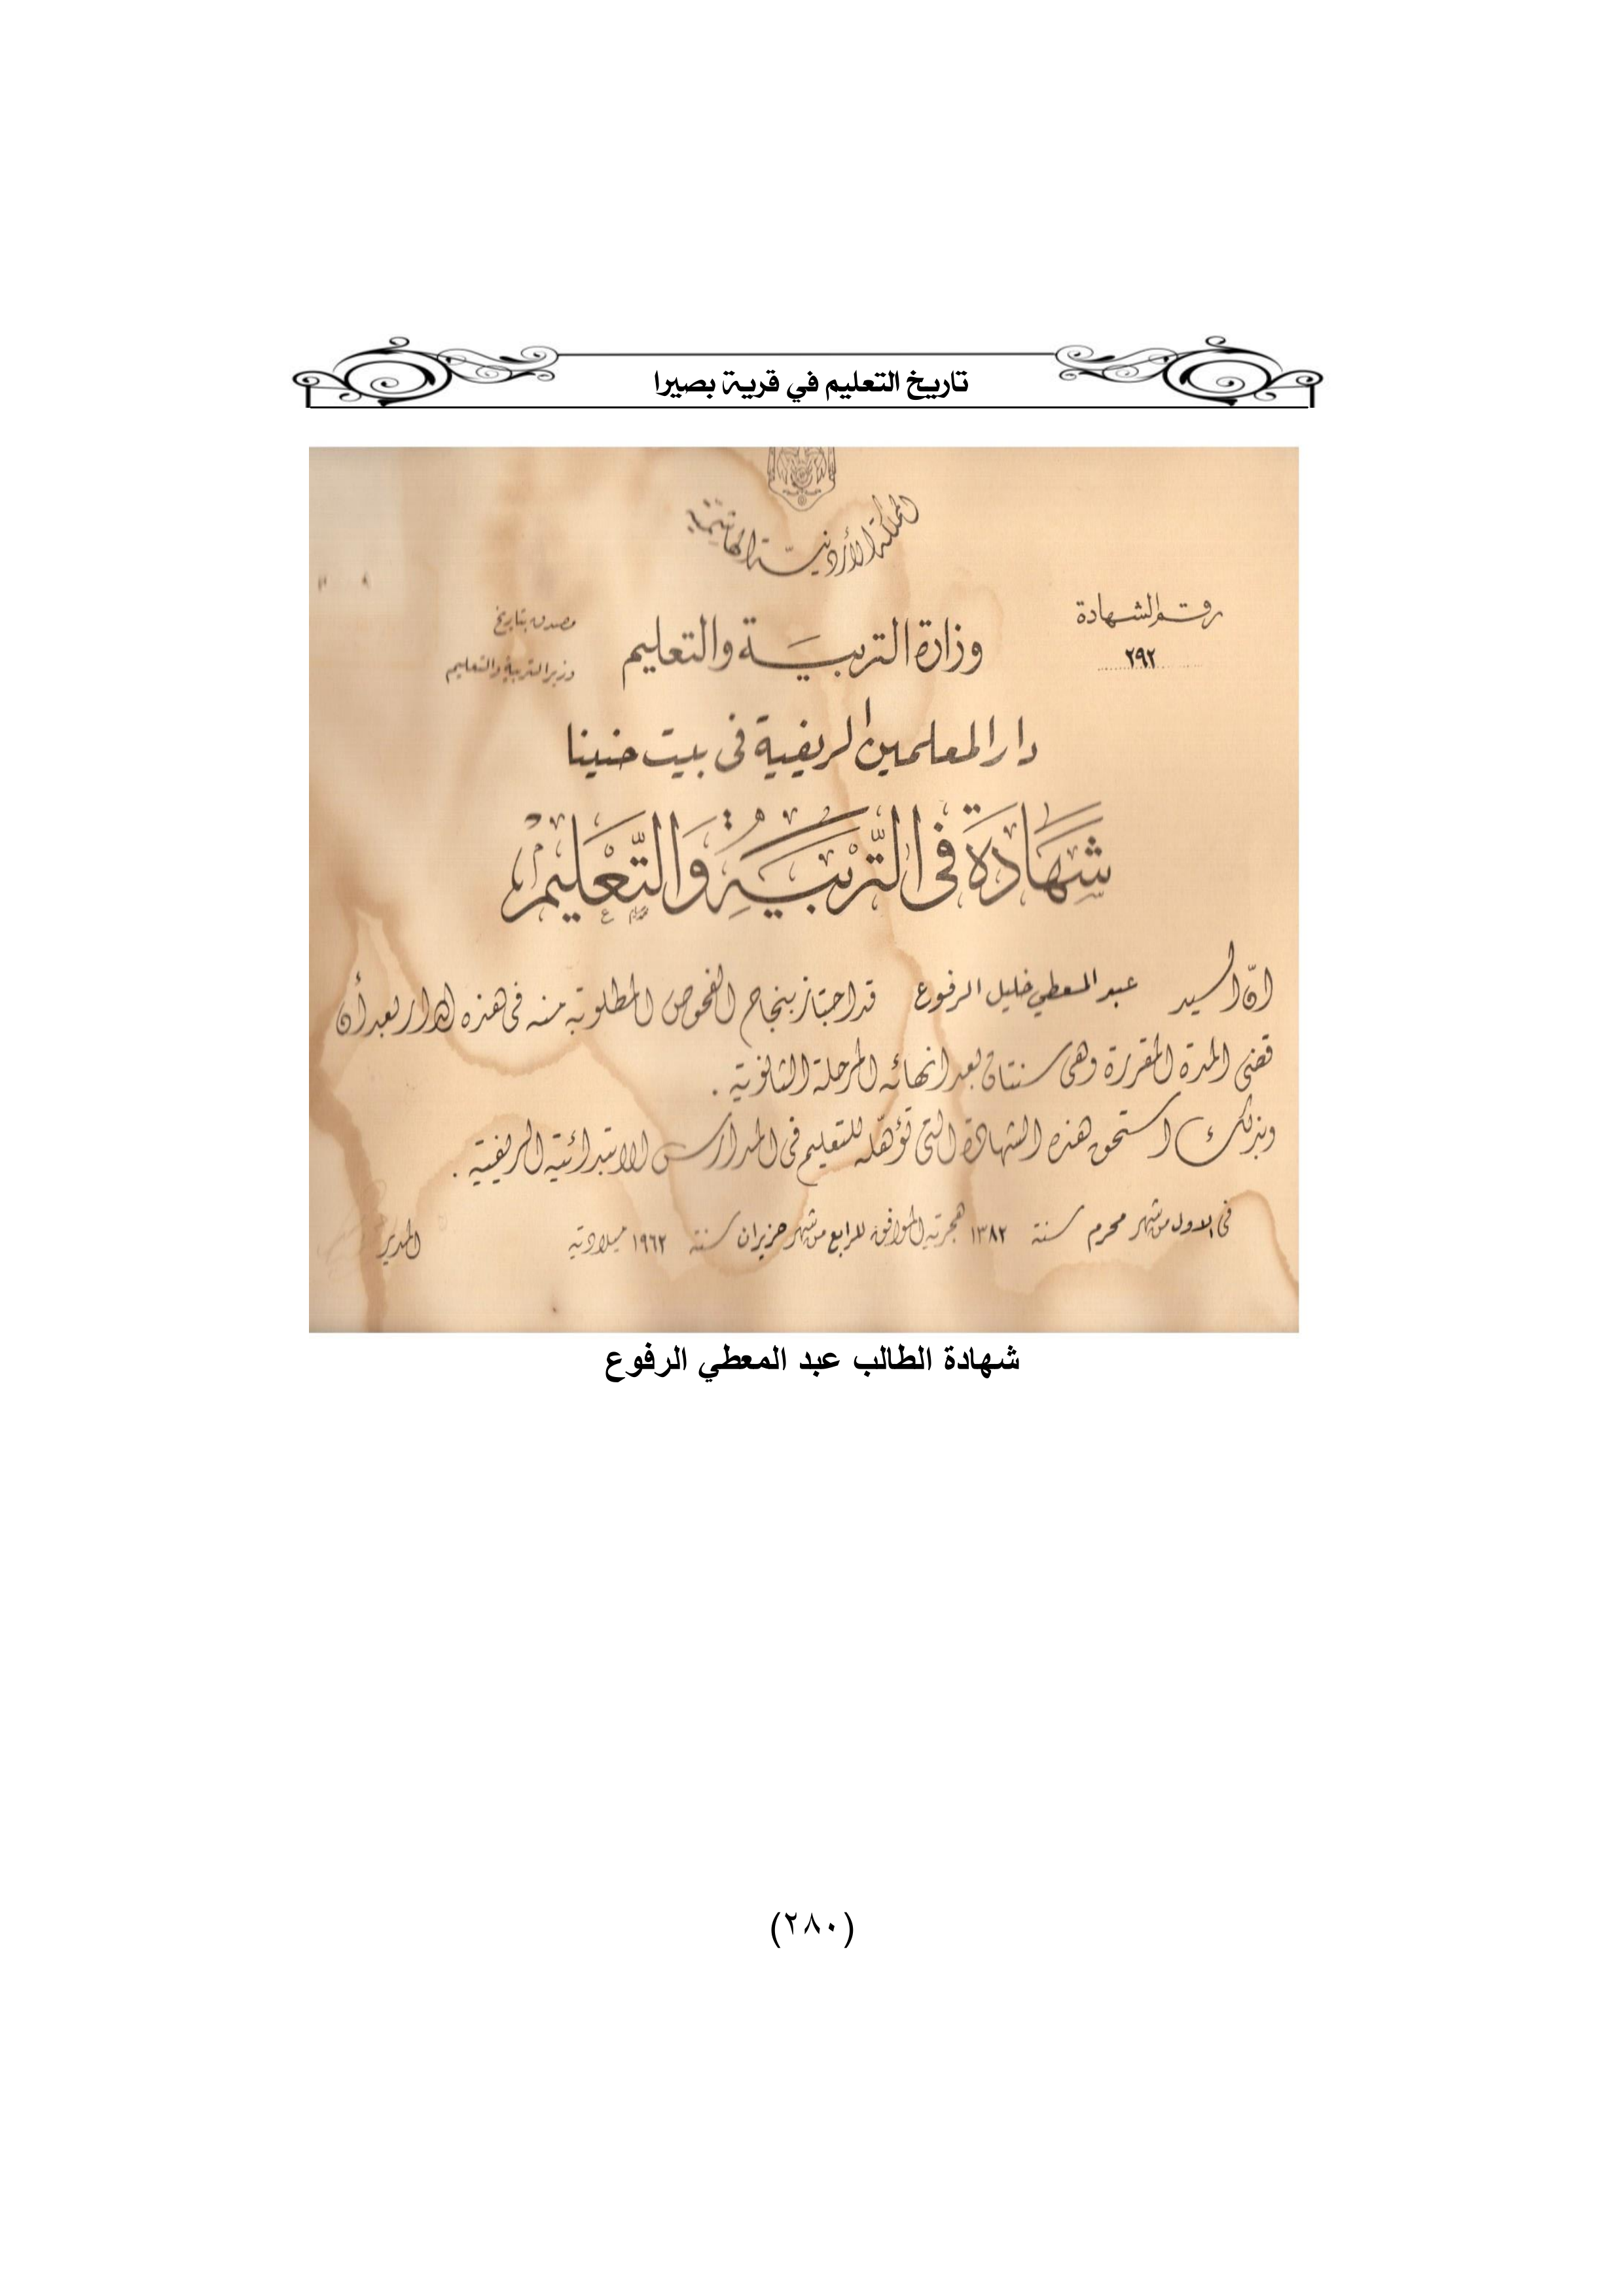 تاريخ التعليم في قرية بصيرا
المملكة الأردنية الهاشمية
رقم الشهادة
٢٩٢
مصدق بتاريخ
وزير التربية والتعليم
وزارة التربية والتعليم
دار المعلمين الريفية فى بيت حنينا
شَهَادَة فى التَّرْبِيَةِ وَالتَّعْليم
انّ السيد عبد المعطي خليل الرفوع قد اجتاز بنجاح الفحوص المطلوبة منه فى هذه الدار بعد أن
قضى المدة المقررة وهى سنتان بعد انهائه المرحلة الثانوية .
وبذلك استحق هذه الشهادة التى تؤهّله للتعليم فى المدارس الابتدائية الريفية .
فى الاول من شهر محرم سنة ١٣٨٢ هجرية الموافق للرابع من شهر حزيران سنة ١٩٦٢ ميلادية
المدير
شهادة الطالب عبد المعطي الرفوع
(٢٨٠)